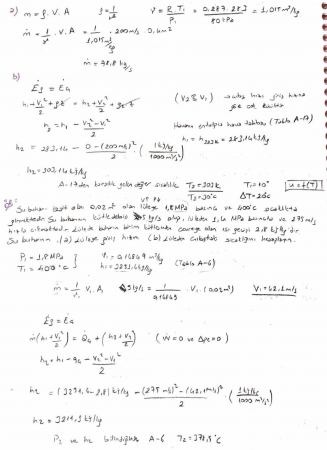 a) m = ρ.V.A ρ = 1/v v = R.T₁/P₁ = 0.287.283/80 kPa = 1,015 m³/kg
ṁ = 1/v . V.A = 1/1,015 m³/kg . 200 m/s 0,4 m²
ṁ = 78,8 kg/s
b)
Ėg = Ėç
h₁ + V₁²/2 + gz = h₂ + V₂²/2 + gz (V₂ ≪ V₁) çıkış hızı giriş hızına göre çok
h₂ = h₁ - V₂² - V₁²/2 Havanın entalpisi hava tablosu (Tablo A-17)
h₁ = h₂₈₃K = 283,14 kJ/kg
h₂ = 283,14 - 0 - (200 m/s)²/2 . (1 kJ/kg/1000 m²/s²)
h₂ = 303,14 kJ/kg
A-17den karşılık gelen değer sıcaklık T₂ = 303 K T₁ = 10° u = f(T)
T₂ = 30°C ΔT = 20°C
Su buharı kesit alanı 0,02 m² olan lüleye 1,8 MPa basınç ve 400°C sıcaklıkta
girmektedir. Su buharının kütlesel debisi 5 kg/s olup, lüleden 1,4 MPa basınçta ve 275 m/s
hızla çıkmaktadır. Lülede buharın birim kütlesinden çevreye olan ısı geçişi 2,8 kJ/kg dır.
Su buharının (a) Lüleye giriş hızını (b) Lülede çıkıştaki sıcaklığını hesaplayın.
P₁ = 1,8 MPa } v₁ = 0,16849 m³/kg
T₁ = 400°C h₁ = 3251,6 kJ/kg (Tablo A-6)
ṁ = 1/v₁ . V₁.A₁ 5 kg/s = 1/0,16849 . V₁ (0.02 m²) V₁ = 42,1 m/s
Ėg = Ėç
ṁ(h₁ + V₁²/2) = Q̇ç + (h₂ + V₂²/2) (Ẇ = 0 ve Δpe = 0)
h₂ = h₁ - qç - V₂² - V₁²/2
h₂ = (3251,6 - 2,8) kJ/kg - (275 m/s)² - (42,1 m/s)²/2 . (1 kJ/kg/1000 m²/s²)
h₂ = 3211,9 kJ/kg
P₂ ve h₂ bilindiğinde A-6 T₂ = 378,5°C